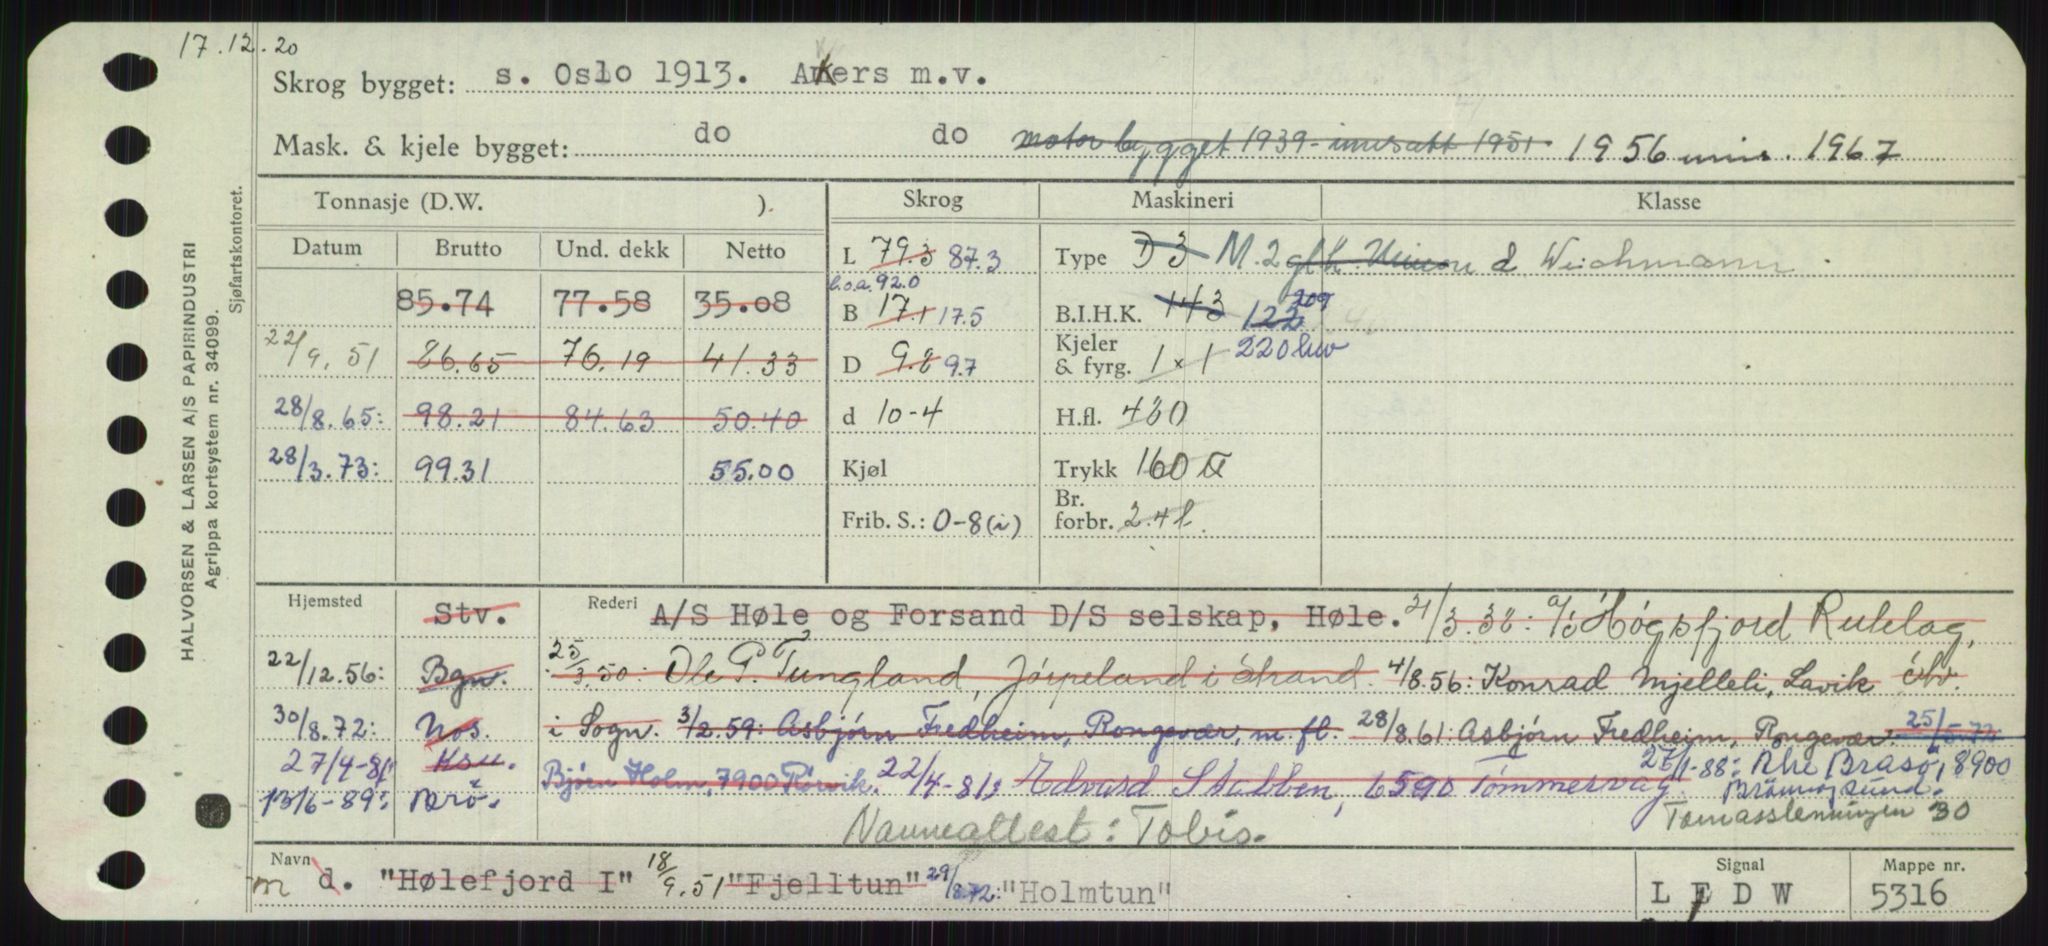 17.12.20
Skrog bygget: s. Oslo 1913. Akers m.v.
Mask. & kjele bygget: do do motor bygget 1939 innsatt 1951 1956 1967
Tonnasje (D.W. ). Skrog Maskineri Klasse
Datum Brutto Und. dekk Netto
L 79.3 87.3 Type D 3 M. 2 Union d Wichmann
l.o.a. 92.0
85.74 77.58 35.08 B 17.1 17.5 B.I.H.K. 143 122 209
22/9.51 86.65 76.19 41.33 D 9.8 9.7 Kjeler & fyrg. 1 x 1 220
28/8.65: 98.21 84.63 50.40 d 10-4 H.fl. 430
28/3.73: 99.31 55.00 Kjøl Trykk 160
Frib. S.: 0-8 (i) Br. forbr. 2.4 t.
Hjemsted Stv. Rederi A/S Høle og Forsand D/S selskap, Høle. 21/3.38: A/S Høgsfjord Rutelag,
22/12.56: Bgn. 25/3.50: Ole P. Tungland, Jørpeland i Strand. 4/8.56: Konrad Mjelleli, Lavik
30/8.72: Nos. i Sogn. 3/2.59: Asbjørn Fredheim, Rongevær, m. fl. 28/8.61: Asbjørn Fredheim, Rongevær. 25/5.72
27/4-81 Ksu. Bjørn Holm, 7900 Rørvik. 22/4-81: Edvard Stabben, 6590 Tømmervåg. 27/1-88: Rhe Brasø, 8900
13/6-89: Brø. Brønnøysund.
Tomasslenningen 30
Navneattest: Tobis.
Navn m d. "Hølefjord I" 18/9.51 "Fjelltun" 29/8.72: "Holmtun" Signal L E D W Mappe nr. 5316
HALVORSEN & LARSEN A/S PAPIRINDUSTRI
Agrippa kortsystem nr. 34099.
Sjøfartskontoret.